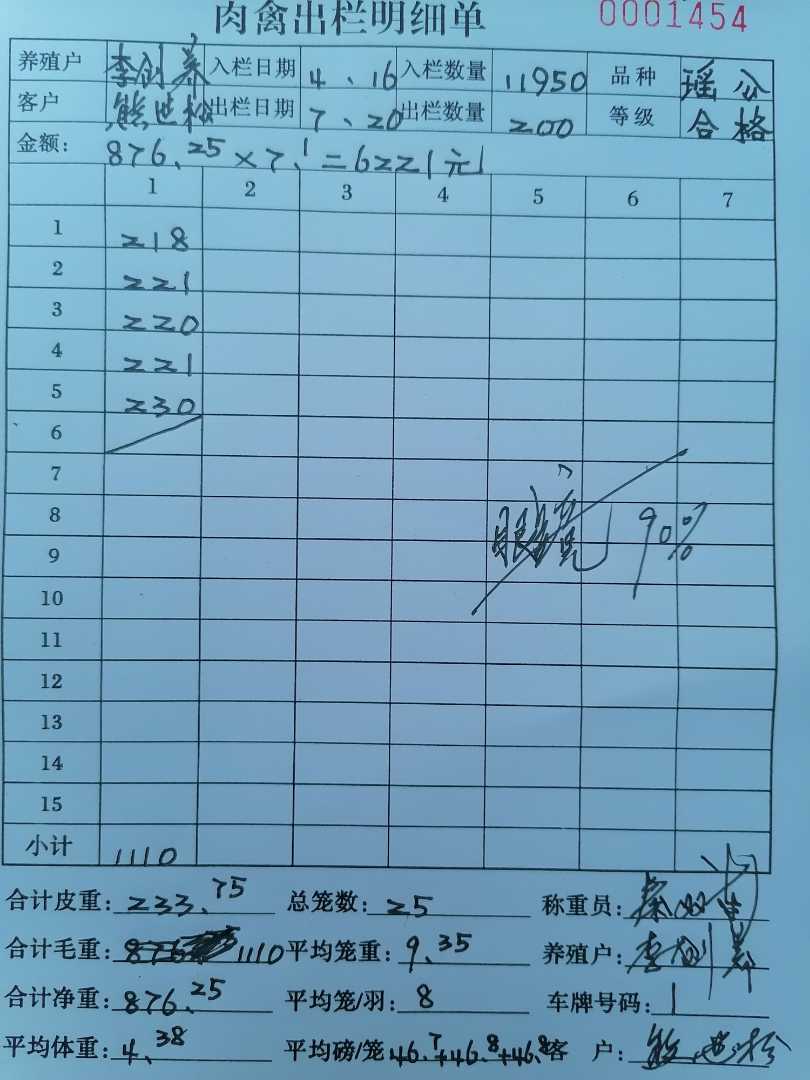 肉禽出栏明细单 0001454
养殖户 李创养 入栏日期 4、16 入栏数量 11950 品种 瑶公
客户 熊世松 出栏日期 7、20 出栏数量 200 等级 合格
金额: 876.25×7.1=6221元
1 2 3 4 5 6 7
1 218
2 221
3 220
4 221
5 230
6
7
8 90%
9
10
11
12
13
14
15
小计 1110
合计皮重: 233.75 总笼数: 25 称重员:
合计毛重: 1110 平均笼重: 9.35 养殖户:
合计净重: 876.25 平均笼/羽: 8 车牌号码: 1
平均体重: 4.38 平均磅/笼 46.7+46.8+46.8 客 户: